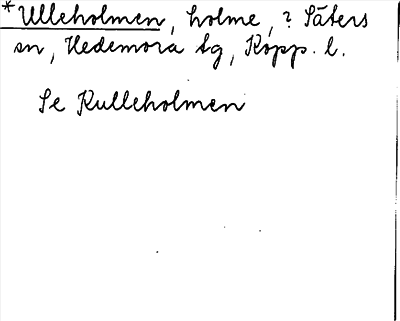 *Ulleholmen, holme, ? Säters
sn, Hedemora tg, Kopp. l.
Se Kulleholmen